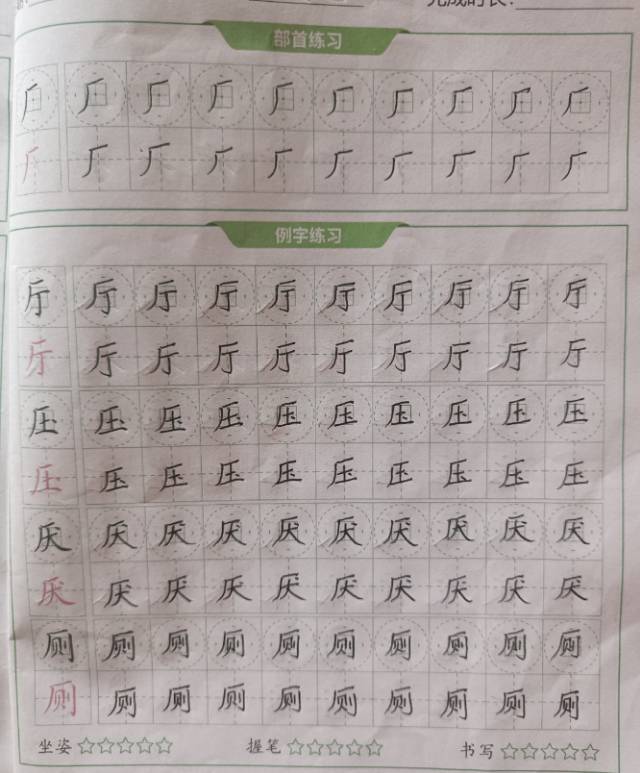 完成时长:
部首练习
厂厂厂厂厂厂厂厂厂厂
厂厂厂厂厂厂厂厂厂厂
例字练习
厅厅厅厅厅厅厅厅厅厅
厅厅厅厅厅厅厅厅厅厅
压压压压压压压压压压
压压压压压压压压压压
厌厌厌厌厌厌厌厌厌厌
厌厌厌厌厌厌厌厌厌厌
厕厕厕厕厕厕厕厕厕厕
厕厕厕厕厕厕厕厕厕厕
坐姿☆☆☆☆☆ 握笔☆☆☆☆☆ 书写☆☆☆☆☆